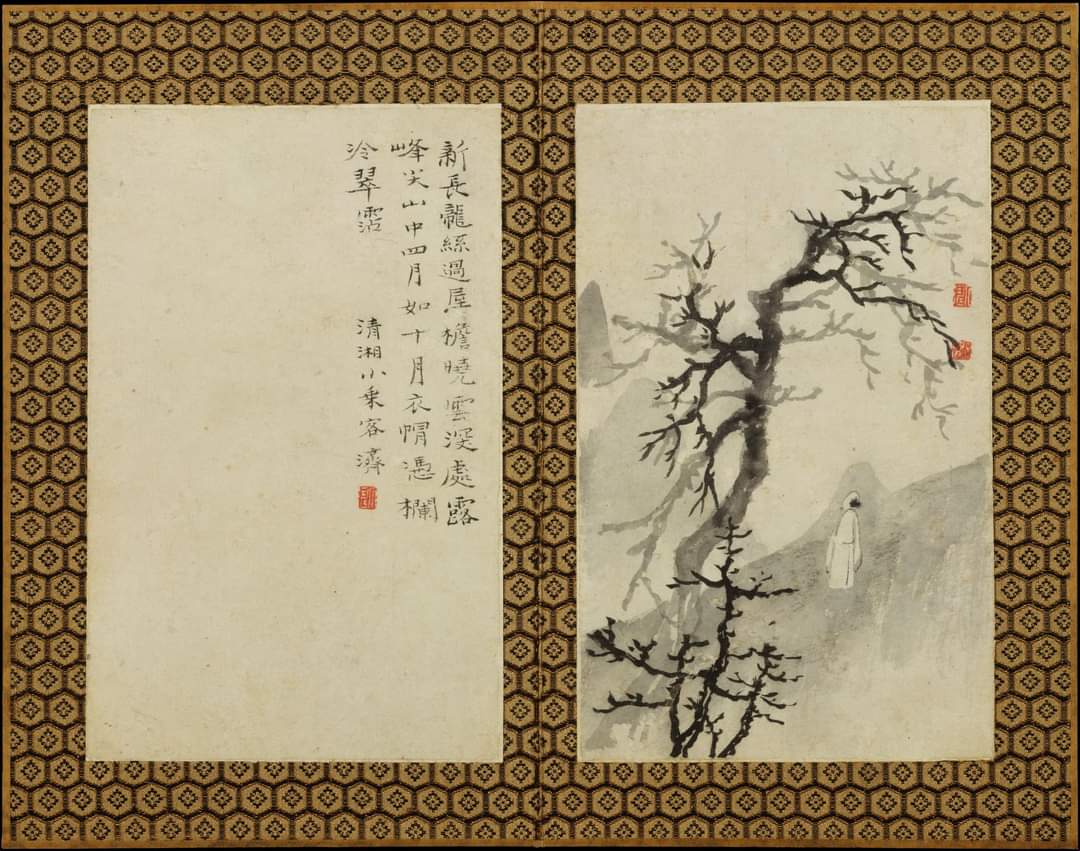 新長龍絲過屋檐曉雲深處露
峰尖山中四月如十月衣帽憑欄
冷翠霑
清湘小乘客濟